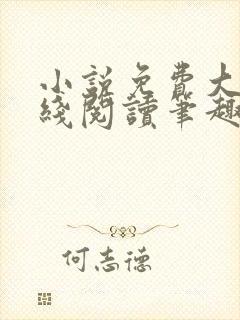 小說免費大
綫閱讀筆趣
何志德